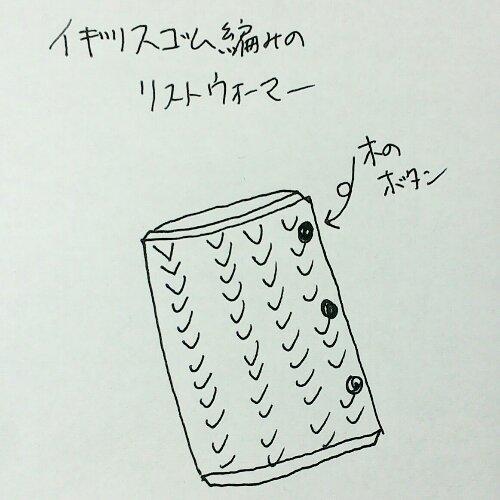 イギリスゴム編みの
リストウォーマー
木の
ボタン